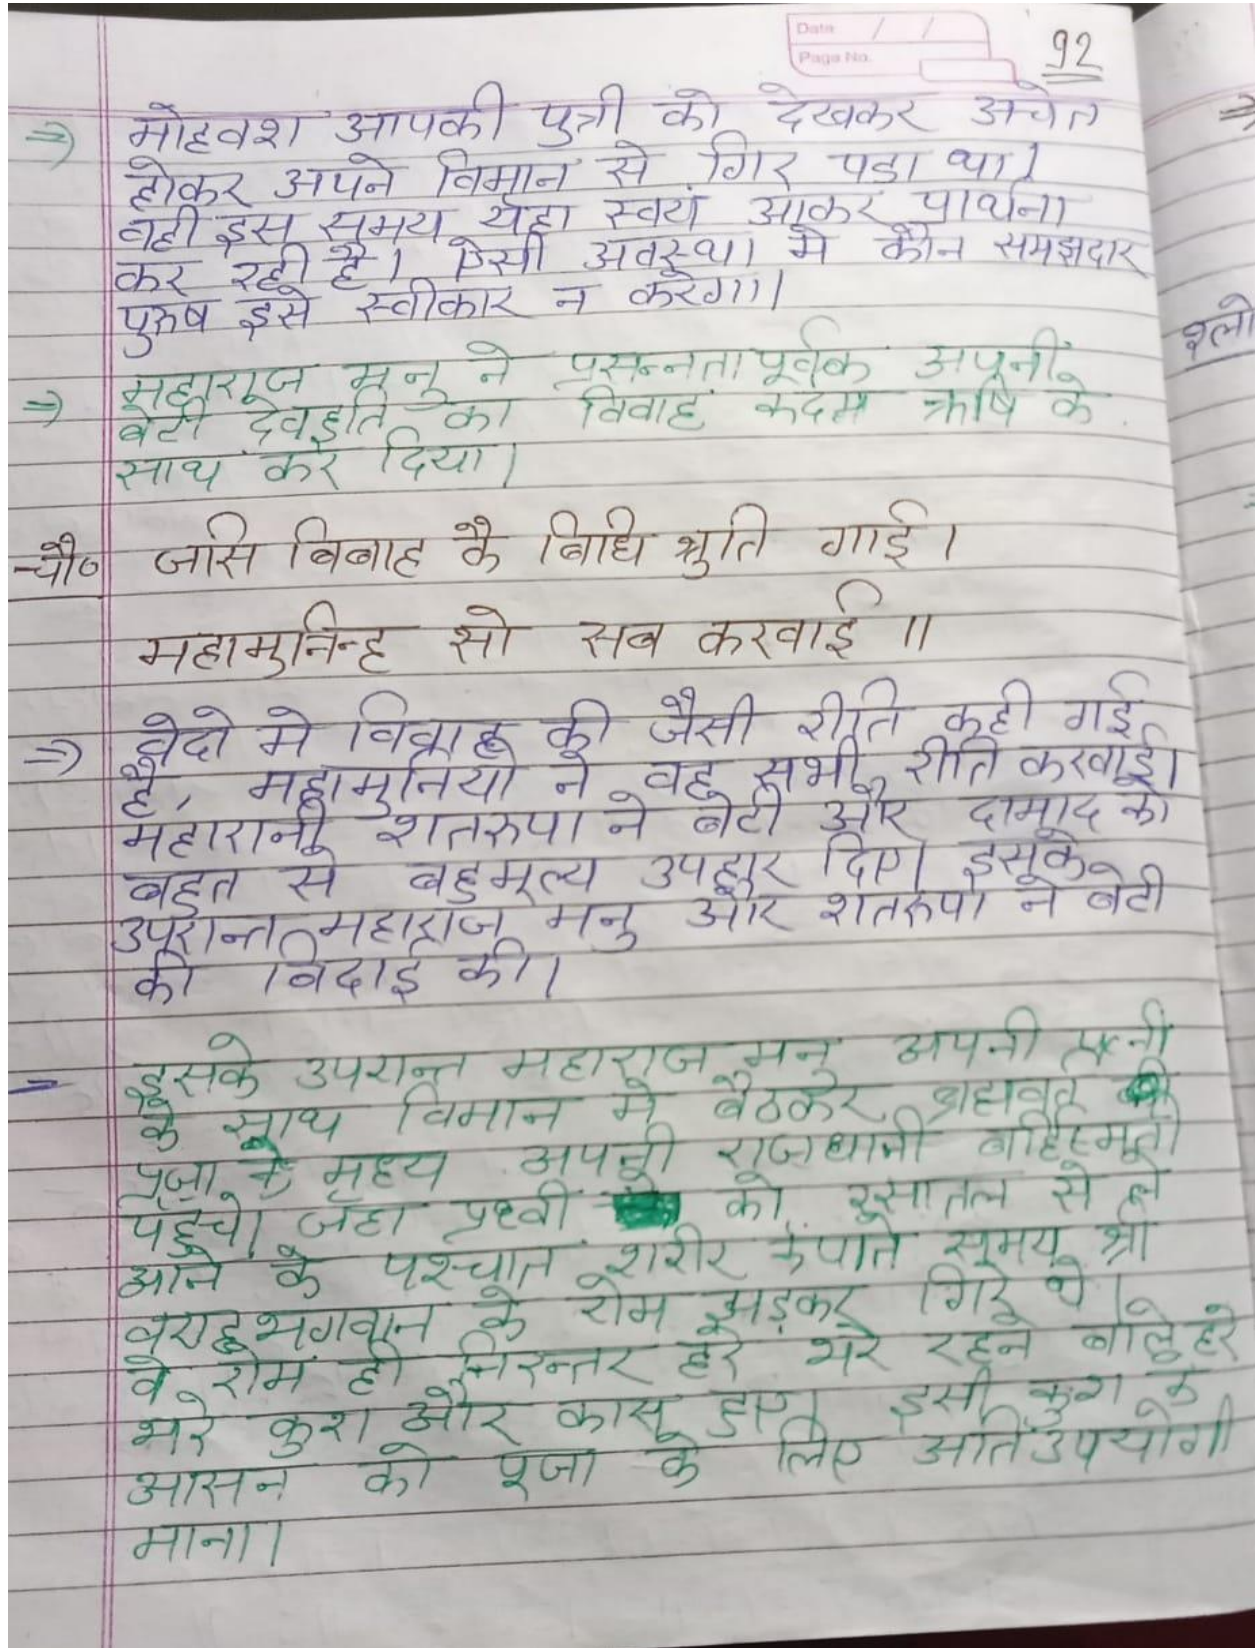 Date / /
Page No.
92
⇒ मोहवश आपकी पुत्री को देखकर अचेत
होकर अपने विमान से गिर पडा था।
वही इस समय यहा स्वयं आकर प्रार्थना
कर रही है। ऐसी अवस्था मे कौन समझदार
पुरुष इसे स्वीकार न करेगा।
⇒ महाराज मनु ने प्रसन्नतापूर्वक अपनी
बेटी देवहूति का विवाह कदम ऋषि के
साथ कर दिया।
चौ० जसि बिबाह कै बिधि श्रुति गाई।
महामुनिन्ह सो सब करवाई ॥
⇒ वेदो मे विवाह की जैसी रीति कही गई
है, महामुनियो ने वह सभी रीति करवाई।
महारानी शतरुपा ने बेटी और दामाद को
बहुत से बहुमूल्य उपहार दिए। इसके
उपरान्त महाराज मनु और शतरुपा ने बेटी
की विदाई की।
इसके उपरान्त महाराज मनु अपनी पत्नी
के साथ विमान मे बैठकर की
प्रजा के मध्य अपनी राजधानी बर्हिस्मृती
पहुचे। जहा प्रथ्वी को रसातल से ले
आने के पश्चात शरीर कंपाते समय श्री
वराहभगवान के रोम झड़कर गिरे थे।
वे रोम ही निरन्तर हरे भरे रहने वाले हरे
भरे कुश और कास हुए। इसी कुश के
आसन को पूजा के लिए अति उपयोगी
माना।
श्लो